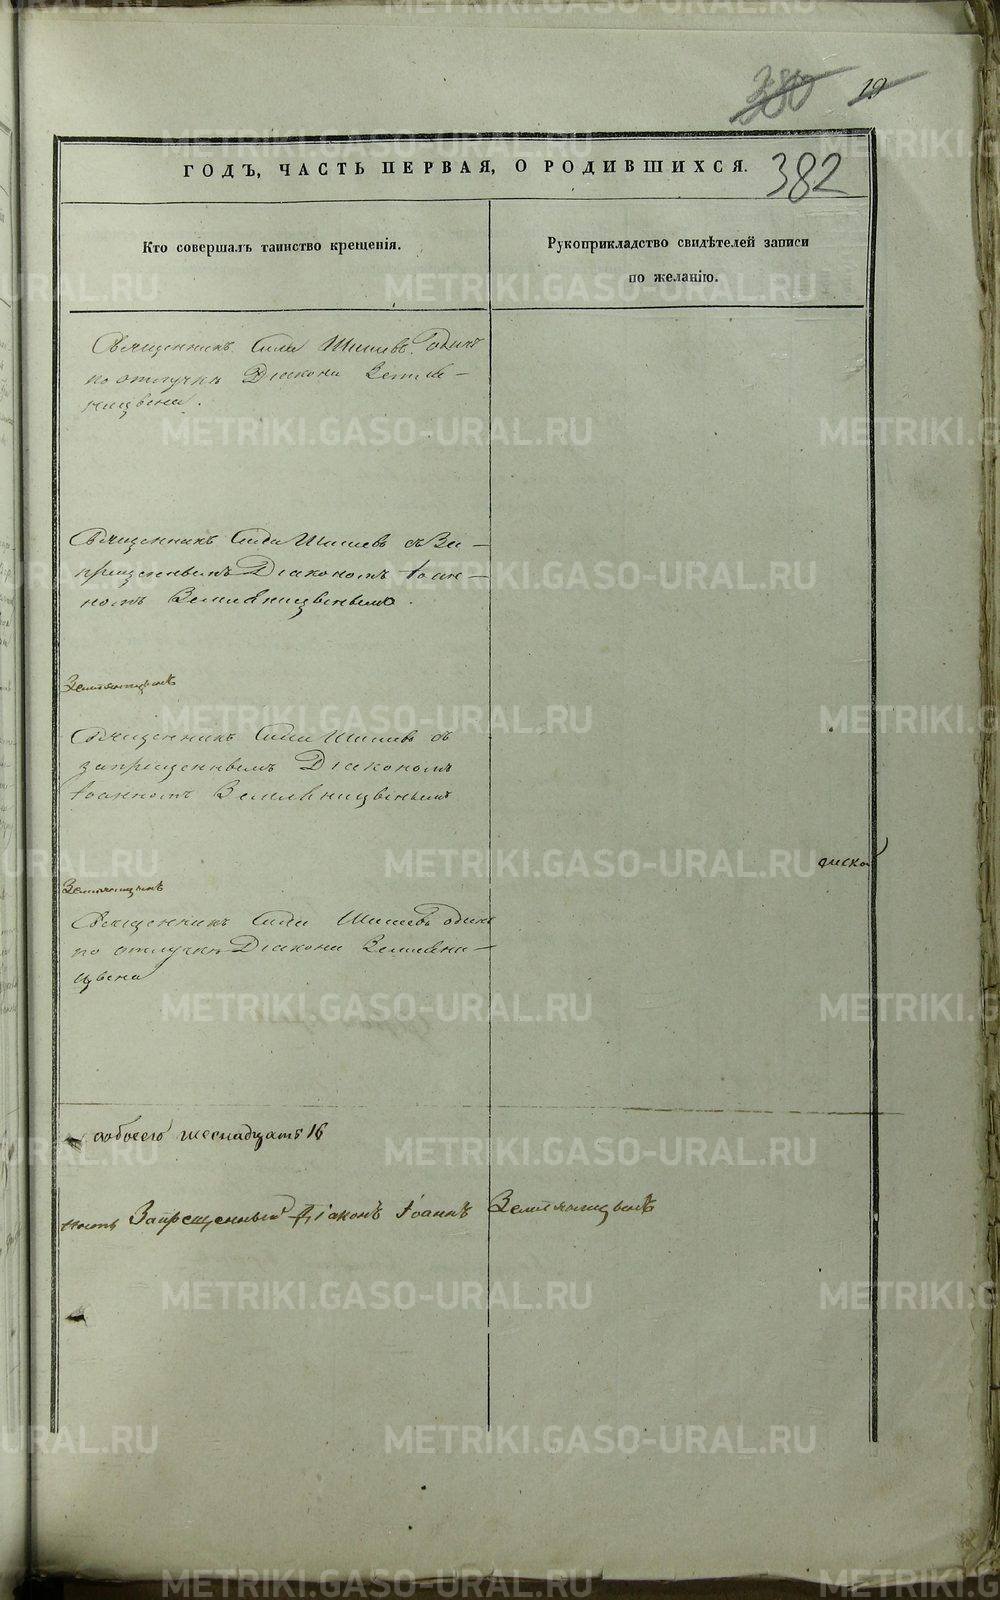 METRIKI.GASO-URAL.RU
380 19
ГОДЪ, ЧАСТЬ ПЕРВАЯ, О РОДИВШИХСЯ. 382
Кто совершалъ таинство крещенія.
Рукоприкладство свидѣтелей записи
по желанію.
Священникъ Сила Шишевъ одинъ
по отлучкѣ Діакона Земля-
ницвена.
Священникъ Сила Шишевъ съ За-
прещеннымъ Діакономъ Іоан-
номъ Земляницвенымъ.
Земляницынъ
Священникъ Сила Шишевъ съ
запрещеннымъ Діакономъ
Іоанномъ Земляницвенымъ
Земляницынъ
Священникъ Сила Шишевъ одинъ
по отлучкѣ ДіаконаЗемляни-
цвена
обоего шеснадцать 16
Запрещенный Діаконъ Іоаннъ Земляницынъ